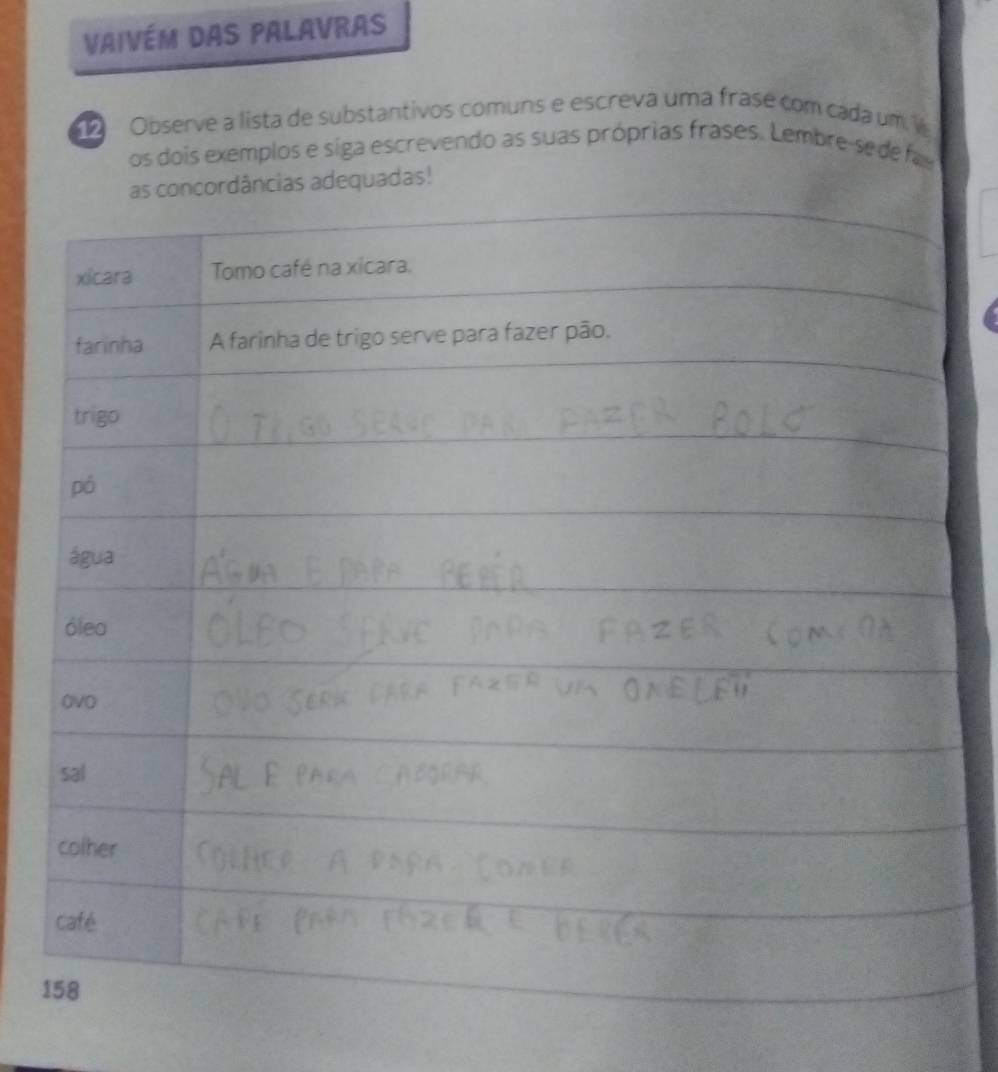 VAIVÉM DAS PALAVRAS
12 Observe a lista de substantivos comuns e escreva uma frase com cada um.
os dois exemplos e siga escrevendo as suas próprias frases. Lembre-se de
as concordâncias adequadas!
xícara Tomo café na xícara.
farinha A farinha de trigo serve para fazer pão.
trigo O SERVE FAZER BOLO
pó
água ÁGUA E PARA
óleo ÓLEO SERVE PARA FAZER
ovo OVO PARA FAZER UM
sal SAL E PARA
colher COLHER A PARA COMER
café CAFÉ PARA FAZER E
158